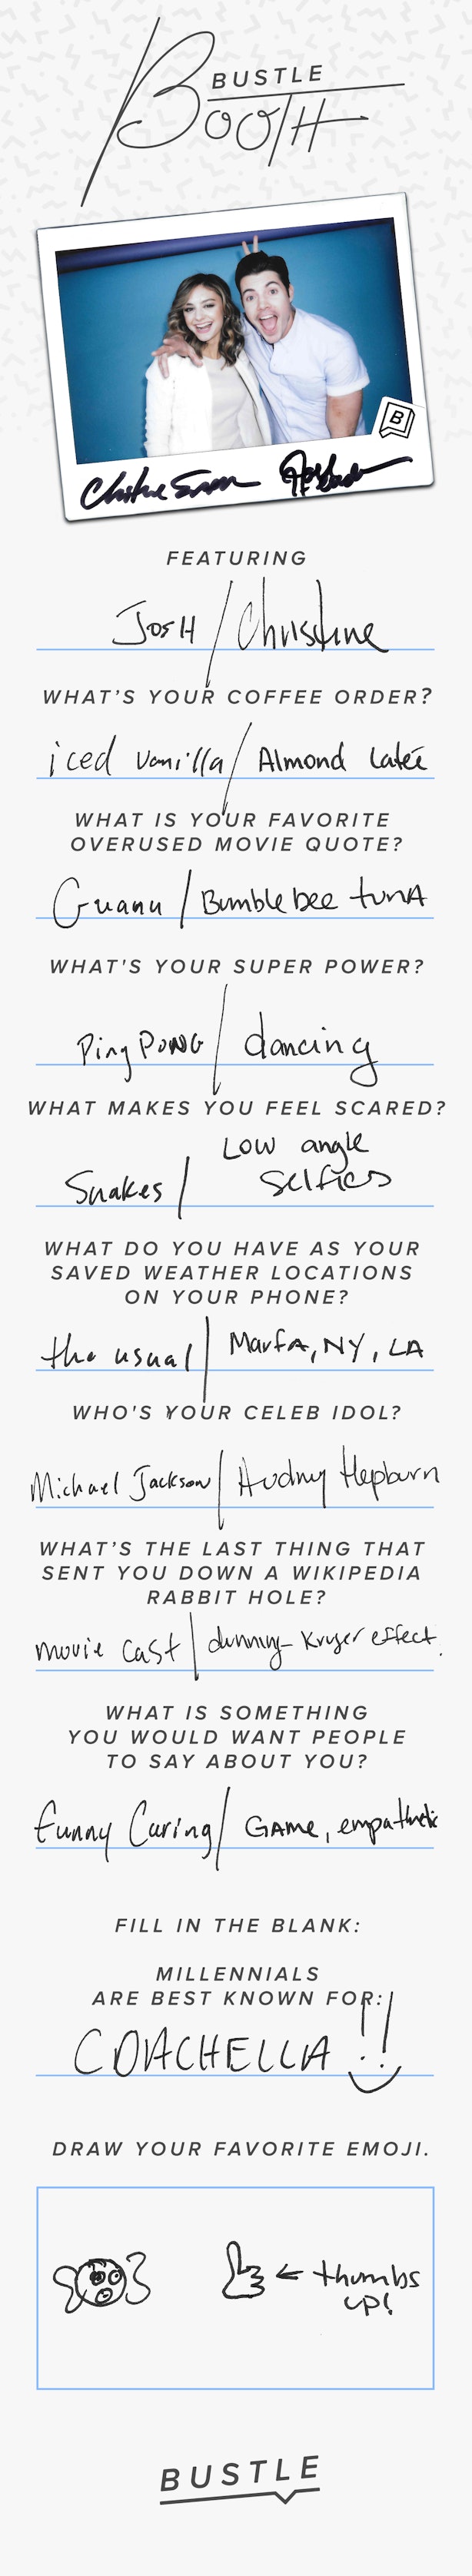 BUSTLE
BOOTH
B
Christine
FEATURING
JOSH / Christine
WHAT'S YOUR COFFEE ORDER?
iced vanilla / Almond Latée
WHAT IS YOUR FAVORITE
OVERUSED MOVIE QUOTE?
Guanu / Bumble bee tunA
WHAT'S YOUR SUPER POWER?
Ping PONG / dancing
WHAT MAKES YOU FEEL SCARED?
Low angle
Snakes / Selfies
WHAT DO YOU HAVE AS YOUR
SAVED WEATHER LOCATIONS
ON YOUR PHONE?
the usual / MarfA, NY, LA
WHO'S YOUR CELEB IDOL?
Michael Jackson / Audrey Hepburn
WHAT'S THE LAST THING THAT
SENT YOU DOWN A WIKIPEDIA
RABBIT HOLE?
movie cast / dunning-Kruger effect.
WHAT IS SOMETHING
YOU WOULD WANT PEOPLE
TO SAY ABOUT YOU?
funny Caring / GAME, empathetic
FILL IN THE BLANK:
MILLENNIALS
ARE BEST KNOWN FOR:
COACHELLA !!
DRAW YOUR FAVORITE EMOJI.
← thumbs
up!
BUSTLE